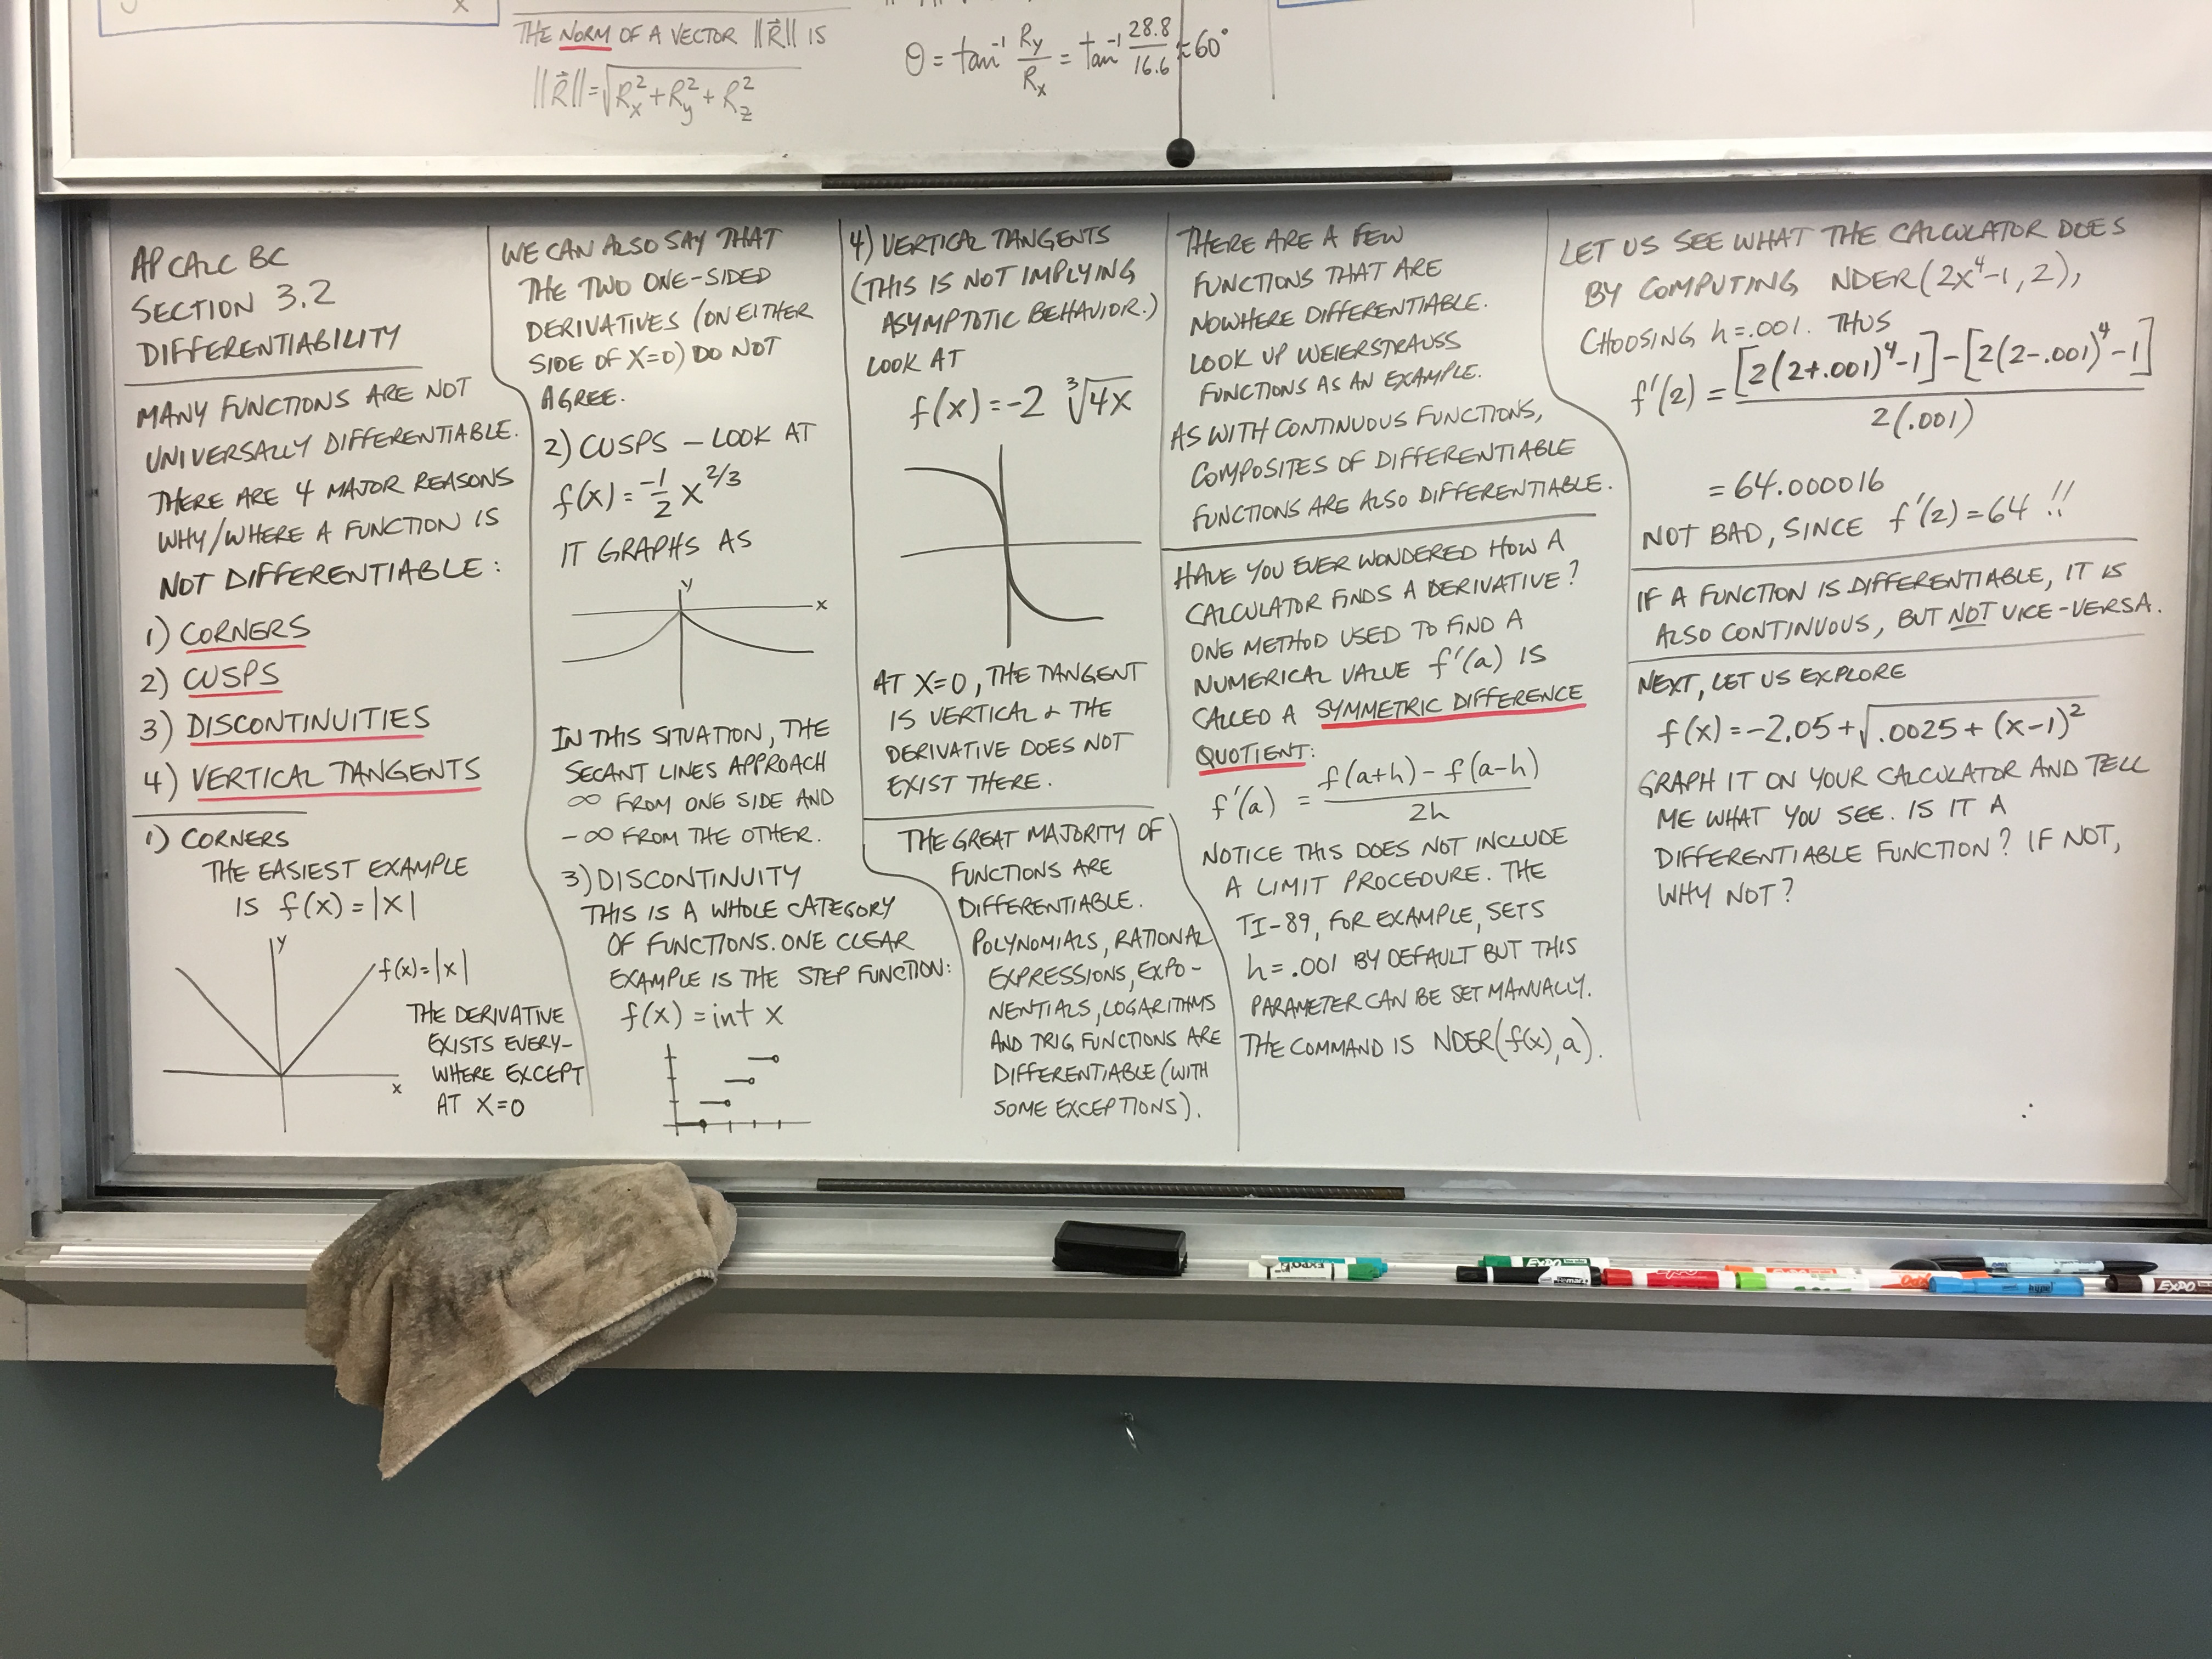 THE NORM OF A VECTOR ||R⃗|| IS
||R⃗|| = √(Rx² + Ry² + Rz²)
θ = tan⁻¹ Ry/Rx = tan⁻¹ 28.8/16.6 ≈ 60°
AP CALC BC
SECTION 3.2
DIFFERENTIABILITY
MANY FUNCTIONS ARE NOT
UNIVERSALLY DIFFERENTIABLE.
THERE ARE 4 MAJOR REASONS
WHY/WHERE A FUNCTION IS
NOT DIFFERENTIABLE:
1) CORNERS
2) CUSPS
3) DISCONTINUITIES
4) VERTICAL TANGENTS
1) CORNERS
THE EASIEST EXAMPLE
IS f(x) = |x|
y
f(x) = |x|
x
THE DERIVATIVE
EXISTS EVERY-
WHERE EXCEPT
AT X=0
WE CAN ALSO SAY THAT
THE TWO ONE-SIDED
DERIVATIVES (ON EITHER
SIDE OF X=0) DO NOT
AGREE.
2) CUSPS – LOOK AT
f(x) = -1/2 x^(2/3)
IT GRAPHS AS
y
x
IN THIS SITUATION, THE
SECANT LINES APPROACH
∞ FROM ONE SIDE AND
-∞ FROM THE OTHER.
3) DISCONTINUITY
THIS IS A WHOLE CATEGORY
OF FUNCTIONS. ONE CLEAR
EXAMPLE IS THE STEP FUNCTION:
f(x) = int x
4) VERTICAL TANGENTS
(THIS IS NOT IMPLYING
ASYMPTOTIC BEHAVIOR.)
LOOK AT
f(x) = -2 ∛4x
AT X=0, THE TANGENT
IS VERTICAL & THE
DERIVATIVE DOES NOT
EXIST THERE.
THE GREAT MAJORITY OF
FUNCTIONS ARE
DIFFERENTIABLE.
POLYNOMIALS, RATIONAL
EXPRESSIONS, EXPO-
NENTIALS, LOGARITHMS
AND TRIG FUNCTIONS ARE
DIFFERENTIABLE (WITH
SOME EXCEPTIONS).
THERE ARE A FEW
FUNCTIONS THAT ARE
NOWHERE DIFFERENTIABLE.
LOOK UP WEIERSTRAUSS
FUNCTIONS AS AN EXAMPLE.
AS WITH CONTINUOUS FUNCTIONS,
COMPOSITES OF DIFFERENTIABLE
FUNCTIONS ARE ALSO DIFFERENTIABLE.
HAVE YOU EVER WONDERED HOW A
CALCULATOR FINDS A DERIVATIVE?
ONE METHOD USED TO FIND A
NUMERICAL VALUE f'(a) IS
CALLED A SYMMETRIC DIFFERENCE
QUOTIENT:
f'(a) = (f(a+h) - f(a-h))/2h
NOTICE THIS DOES NOT INCLUDE
A LIMIT PROCEDURE. THE
TI-89, FOR EXAMPLE, SETS
h=.001 BY DEFAULT BUT THIS
PARAMETER CAN BE SET MANUALLY.
THE COMMAND IS NDER(f(x), a).
LET US SEE WHAT THE CALCULATOR DOES
BY COMPUTING NDER(2x⁴-1, 2),
CHOOSING h=.001. THUS
f'(2) = ([2(2+.001)⁴-1] - [2(2-.001)⁴-1])/2(.001)
= 64.000016
NOT BAD, SINCE f'(2)=64 !!
IF A FUNCTION IS DIFFERENTIABLE, IT IS
ALSO CONTINUOUS, BUT NOT VICE-VERSA.
NEXT, LET US EXPLORE
f(x) = -2.05 + √(.0025 + (x-1)²)
GRAPH IT ON YOUR CALCULATOR AND TELL
ME WHAT YOU SEE. IS IT A
DIFFERENTIABLE FUNCTION? IF NOT,
WHY NOT?
EXPO
EXPO
EXPO
EXPO